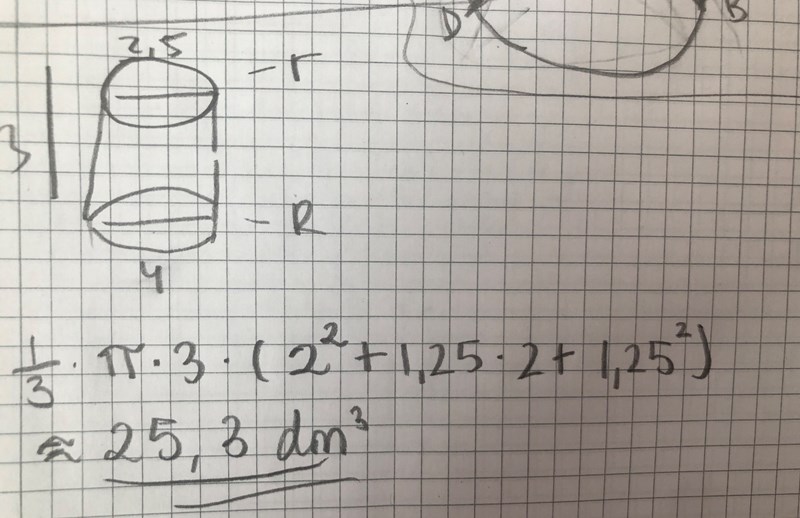 D B
2,5
- r
3
- R
4
1/3 · π · 3 · (2² + 1,25 · 2 + 1,25²)
≈ 25,3 dm³